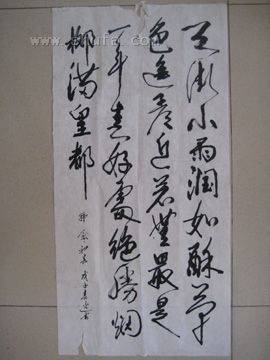 天街小雨润如酥草
色遥看近若无最是
一年春好处绝胜烟
柳满皇都